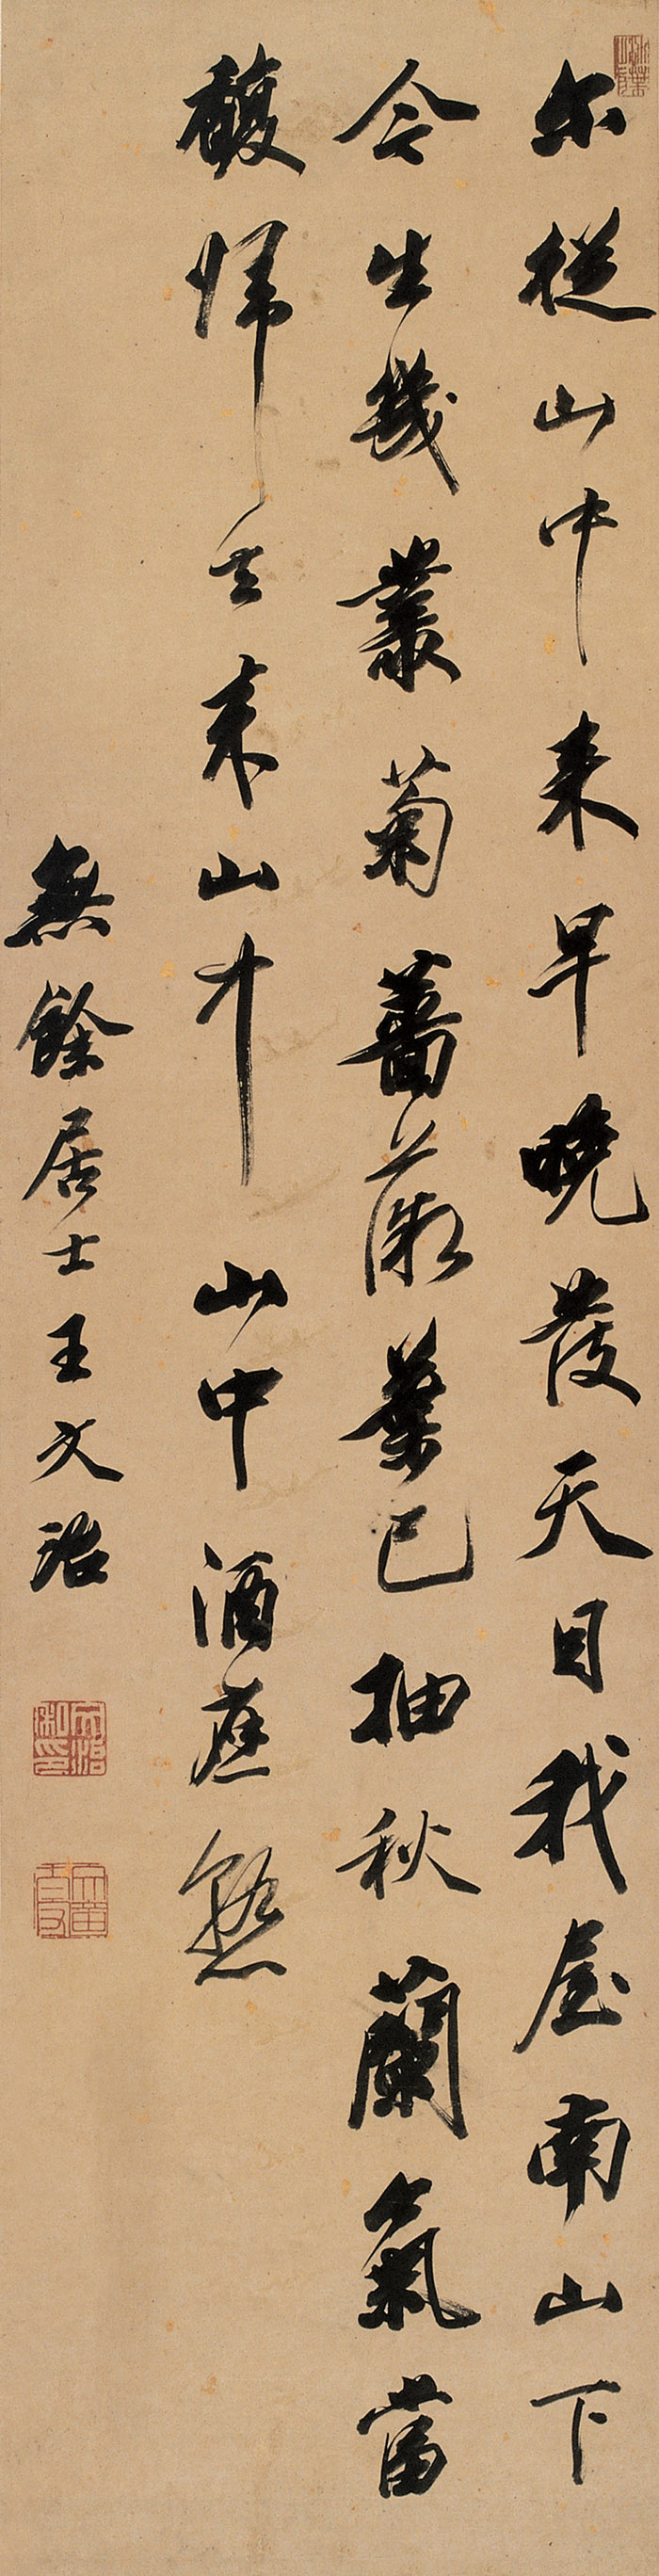 尔從山中来早晚發天目我屋南山下
今生幾叢菊薔薇葉已抽秋蘭氣當
馥歸去来山中山中酒應熟
無餘居士王文治